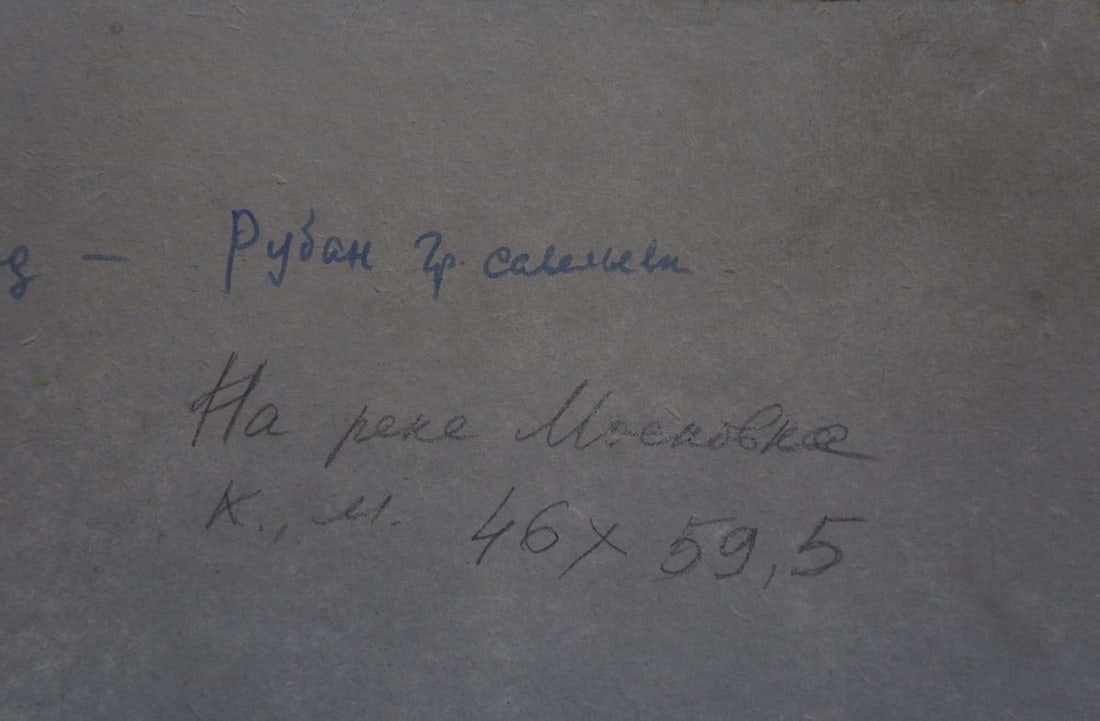 д – Рубан Гр. савельеви
На реке Московка
к., м. 46 х 59,5